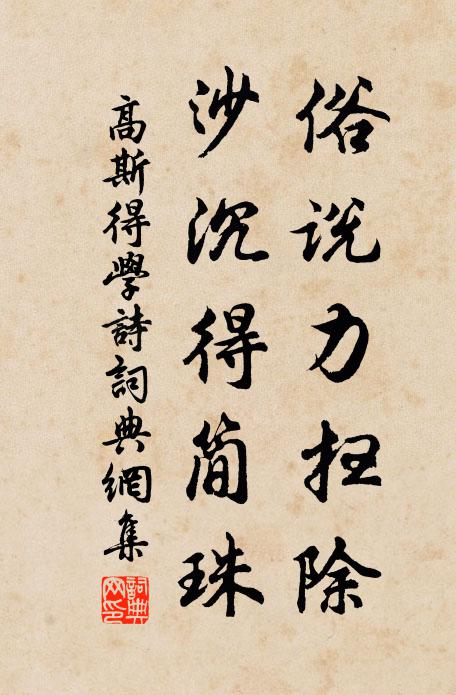 俗说力扫除
沙沉得简珠
高斯得學詩詞典網集
詞典网印